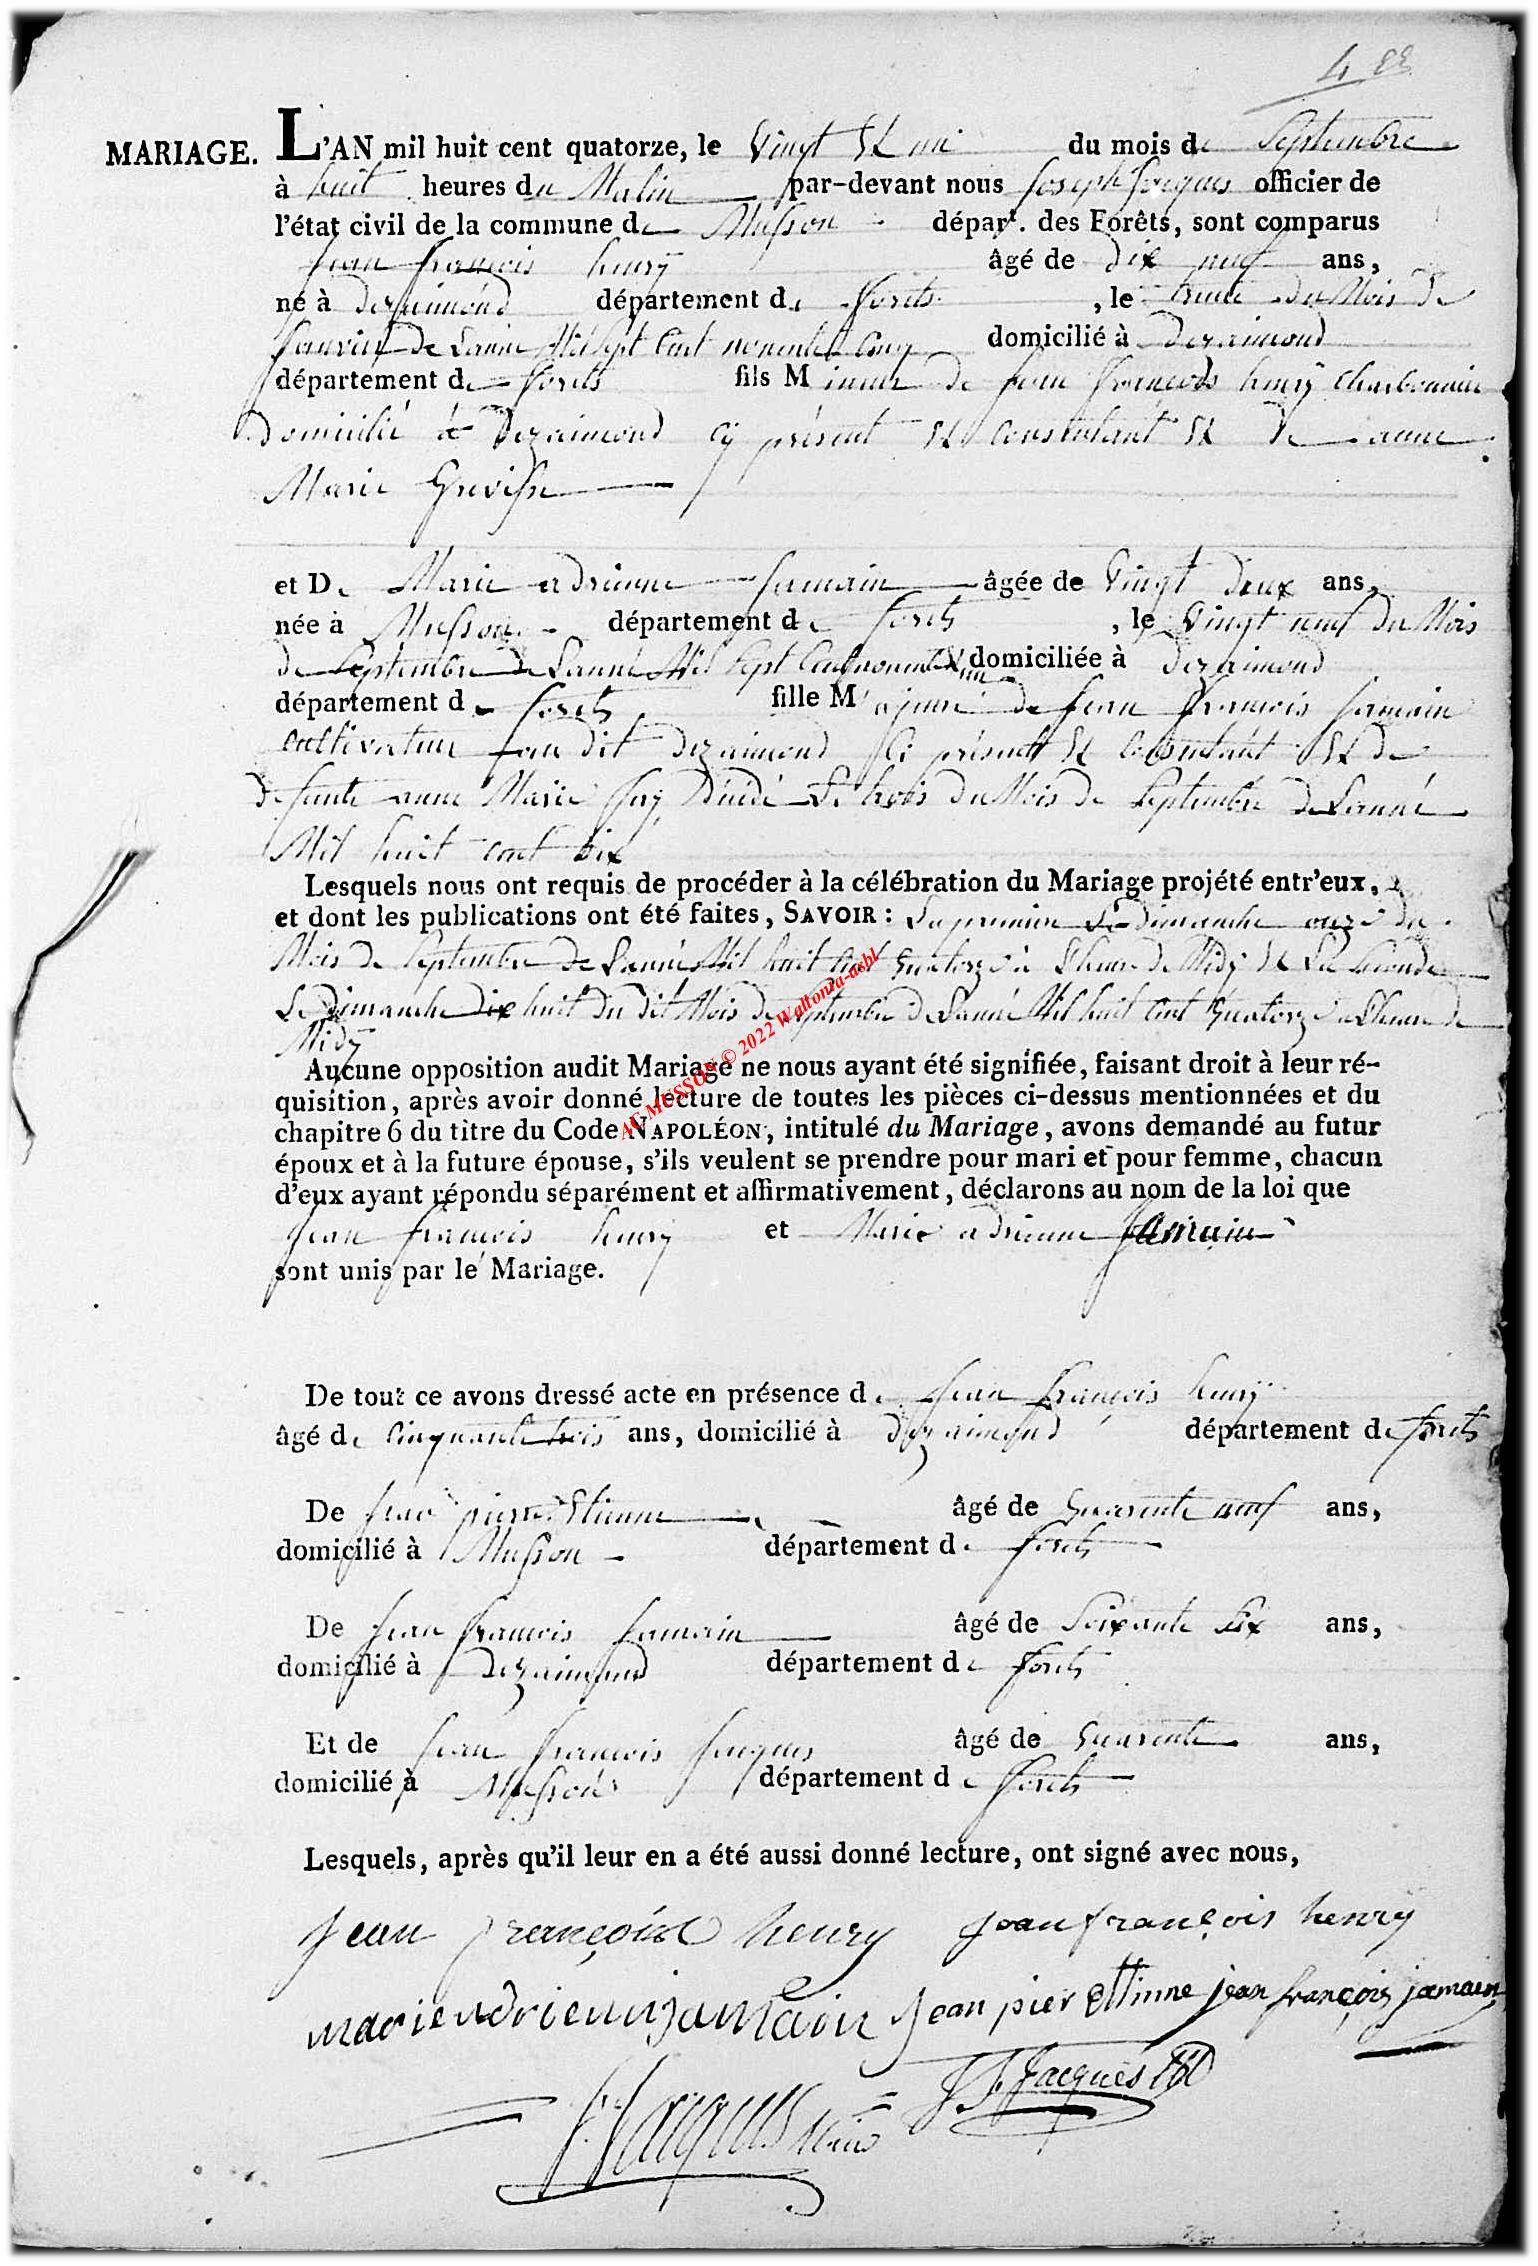 MARIAGE. L'AN mil huit cent quatorze, le Vingt Et un du mois de Septembre
à huit heures du Matin par-devant nous Joseph Jacques officier de
l'état civil de la commune de Musson dépar.t des Forêts, sont comparus
Jean françois henrÿ âgé de dix neuf ans,
né à dezaimond département de forets , le du Mois De
Janvier De Lanné Mil Sept Cent nonente Cinq domicilié à Dezaimond
département de forets fils Mineur de Jean françois henrÿ Charbonnier
Domicilié à Dezaimond cÿ présent Et Consentant Et De anne
Marie Grevisse
et De Marie adrienne Jamain âgée de Vingt deux ans,
née à Musson département de forets , le Vingt neuf Du Mois
de Septembre de Lanné Mil Sept Cent nonente Et un domiciliée à Dezaimond
département de forets fille Majeure De Jean françois Jamain
Cultivateur au dit dezaimond Ci présent Et Consentant Et De
Defunte anne Marie Décédé Le trois Du Mois De Septembre De Lanné
Mil huit Cent Dix
Lesquels nous ont requis de procéder à la célébration du Mariage projété entr'eux,
et dont les publications ont été faites, SAVOIR : La premiere Le Dimanche onze du
Mois De Septembre De Lanné Mil huit Cent Quatorze à Lheure De Midÿ Et La Seconde
Le Dimanche Dix huit Du Dit Mois De Septembre De Lanné Mil huit Cent Quatorze à Lheure De
Midÿ
Aucune opposition audit Mariage ne nous ayant été signifiée, faisant droit à leur ré-
quisition, après avoir donné lecture de toutes les pièces ci-dessus mentionnées et du
chapitre 6 du titre du Code NAPOLÉON, intitulé du Mariage, avons demandé au futur
époux et à la future épouse, s'ils veulent se prendre pour mari et pour femme, chacun
d'eux ayant répondu séparément et affirmativement, déclarons au nom de la loi que
Jean françois henrÿ et Marie adrienne Jamain
sont unis par le Mariage.
De tout ce avons dressé acte en présence de Jean françois henrÿ
âgé de Cinquante trois ans, domicilié à dezaimond département de forets
De Jean pierre Etienne âgé de Quarente neuf ans,
domicilié à Musson département de forets
De Jean françois Jamain âgé de Soixante Six ans,
domicilié à Dezaimond département de forets
Et de Jean françois Jacques âgé de Quarente ans,
domicilié à Musson département de forets
Lesquels, après qu'il leur en a été aussi donné lecture, ont signé avec nous,
Jean françois henry jean françois henrÿ
jean pier Etinne jean françois jamain
J. Jacques Maire J. f. Jacques
AC MUSSON © 2022 Wallonia-asbl